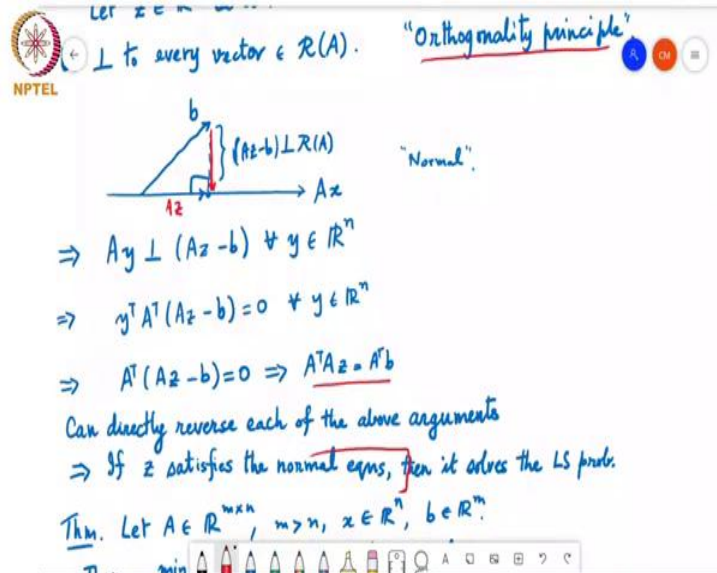 Let z ∈
⊥ to every vector ∈ R(A). "Orthogonality principle"
NPTEL
A CM
b
(Az-b) ⊥ R(A)
"Normal".
Az
Ax
⇒ Ay ⊥ (Az - b) ∀ y ∈ ℝⁿ
⇒ yᵀAᵀ(Az - b) = 0 ∀ y ∈ ℝⁿ
⇒ Aᵀ(Az - b) = 0 ⇒ AᵀAz = Aᵀb
Can directly reverse each of the above arguments
⇒ If z satisfies the normal eqns, then it solves the LS prob.
Thm. Let A ∈ ℝᵐˣⁿ, m > n, x ∈ ℝⁿ, b ∈ ℝᵐ.
min